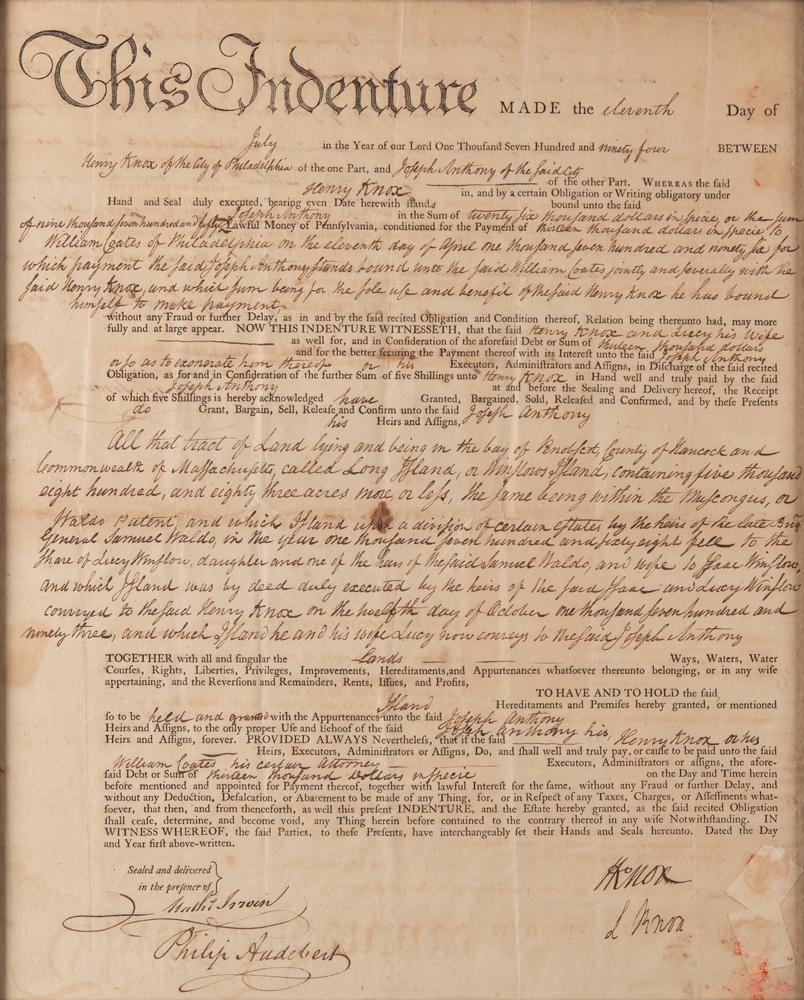 This Indenture MADE the eleventh Day of
July in the Year of our Lord One Thouſand Seven Hundred and ninety four BETWEEN
Henry Knox of the City of Philadelphia of the one Part, and Joſeph Anthony of the ſaid City
of the other Part. WHEREAS the ſaid
Henry Knox in, and by a certain Obligation or Writing obligatory under
Hand and Seal duly executed, bearing even Date herewith ſtands bound unto the ſaid
Joſeph Anthony in the Sum of twenty ſix thouſand dollars in ſpecie, or the ſum
of nine thouſand ſeven hundred and fifty Lawful Money of Pennſylvania, conditioned for the Payment of thirteen thouſand dollars in ſpecie to
William Coates of Philadelphia on the eleventh day of April one thouſand ſeven hundred and ninety ſix for
which payment the ſaid Joſeph Anthony ſtands bound unto the ſaid William Coates jointly and ſeverally with the
ſaid Henry Knox, and which ſum being for the ſole uſe and benefit of the ſaid Henry Knox he has bound
himſelf to make payment
without any Fraud or further Delay, as in and by the ſaid recited Obligation and Condition thereof, Relation being thereunto had, may more
fully and at large appear. NOW THIS INDENTURE WITNESSETH, that the ſaid Henry Knox and Lucy his Wife
as well for, and in Conſideration of the aforeſaid Debt or Sum of thirteen thouſand dollars
and for the better ſecuring the Payment thereof with its Intereſt unto the ſaid Joſeph Anthony
or ſo as to exonerate him thereof or his Executors, Adminiſtrators and Aſſigns, in Diſcharge of the ſaid recited
Obligation, as for and in Conſideration of the further Sum of five Shillings unto Henry Knox in Hand well and truly paid by the ſaid
Joſeph Anthony at and before the Sealing and Delivery hereof, the Receipt
of which five Shillings is hereby acknowledged have Granted, Bargained, Sold, Releaſed and Confirmed, and by theſe Preſents
do Grant, Bargain, Sell, Releaſe and Confirm unto the ſaid Joſeph Anthony
his Heirs and Aſſigns,
All that tract of Land lying and being in the bay of Penobſcot, County of Hancock and
Commonwealth of Maſſachuſetts, called Long Iſland, or Winſlows Iſland, containing five thouſand
eight hundred, and eighty three acres more or leſs, the ſame being within the Muſcongus, or
Waldo patent, and which Iſland upon a diviſion of certain eſtates by the heirs of the late Brig
General Samuel Waldo, in the year one thouſand ſeven hundred and ſixty eight fell to the
ſhare of Lucy Winſlow, daughter and one of the heirs of the ſaid Samuel Waldo, and wife to Iſaac Winſlow,
and which Iſland was by deed duly executed by the heirs of the ſaid Iſaac and Lucy Winſlow
conveyed to the ſaid Henry Knox on the twelfth day of October one thouſand ſeven hundred and
ninety three, and which Iſland he and his wife Lucy now conveys to the ſaid Joſeph Anthony
TOGETHER with all and ſingular the Lands Ways, Waters, Water
Courſes, Rights, Liberties, Privileges, Improvements, Hereditaments, and Appurtenances whatſoever thereunto belonging, or in any wiſe
appertaining, and the Reverſions and Remainders, Rents, Iſſues, and Profits,
TO HAVE AND TO HOLD the ſaid
Iſland Hereditaments and Premiſes hereby granted, or mentioned
ſo to be held and granted with the Appurtenances unto the ſaid Joſeph Anthony
Heirs and Aſſigns, to the only proper Uſe and Behoof of the ſaid Joſeph Anthony his
Heirs and Aſſigns, forever. PROVIDED ALWAYS Nevertheleſs, that if the ſaid Henry Knox or his
Heirs, Executors, Adminiſtrators or Aſſigns, Do, and ſhall well and truly pay, or cauſe to be paid unto the ſaid
William Coates, his certain attorney Executors, Adminiſtrators or aſſigns, the afore-
ſaid Debt or Sum of thirteen thouſand Dollars in ſpecie on the Day and Time herein
before mentioned and appointed for Payment thereof, together with lawful Intereſt for the ſame, without any Fraud or further Delay, and
without any Deduction, Defalcation, or Abatement to be made of any Thing, for, or in Reſpect of any Taxes, Charges, or Aſſeſſments what-
ſoever, that then, and from thenceforth, as well this preſent INDENTURE, and the Eſtate hereby granted, as the ſaid recited Obligation
ſhall ceaſe, determine, and become void, any Thing herein before contained to the contrary thereof in any wiſe Notwithſtanding. IN
WITNESS WHEREOF, the ſaid Parties, to theſe Preſents, have interchangeably ſet their Hands and Seals hereunto. Dated the Day
and Year firſt above-written.
Sealed and delivered
in the preſence of
HKnox
Nathl. Irwin
L Knox
Philip Audebert